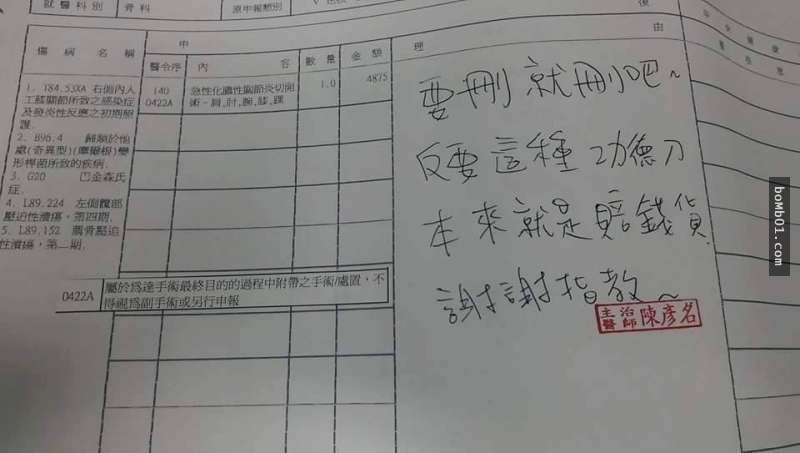 就醫科別
骨科
原申報類別
復
傷病名稱
申
醫令序
內容
數量
金額
理由
1. T84.53XA 右側內人
工膝關節所致之感染症
及發炎性反應之初期照
護.
140
0422A
急性化膿性關節炎切開
術-肩,肘,腕,膝,踝
1.0
4875
2. B96.4 歸類於他
處(奇異型)(摩爾根)變
形桿菌所致的疾病.
3. G20 巴金森氏
症.
4. L89.224 左側髖部
壓迫性潰瘍,第四期.
5. L89.152 薦骨壓迫
性潰瘍,第二期.
0422A
屬於為達手術最終目的的過程中附帶之手術/處置,不
得視為副手術或另行申報
要刪就刪吧~
反要這種功德刀
本來就是賠錢貨
謝謝指教~
主治醫師 陳彥名
boMb01.com